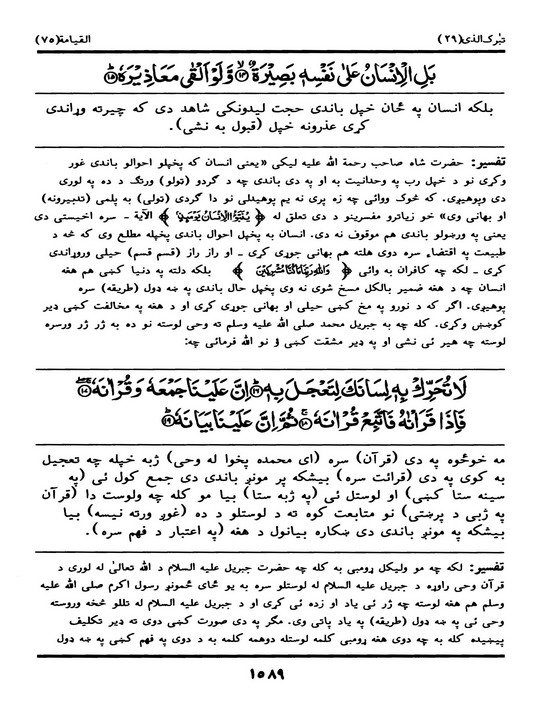 تبٰرك الذي (٢٩)
القيامة (٧٥)
بَلِ الْاِنْسَانُ عَلٰى نَفْسِهٖ بَصِيْرَةٌ ﴿١٤﴾ وَّلَوْ اَلْقٰى مَعَاذِيْرَهٗ ﴿١٥﴾
بلكه انسان په ځان خپل باندي حجت ليدونكى شاهد دى كه چيرته وړاندي
كړى عذرونه خپل (قبول به نشي).
تفسير: حضرت شاه صاحب رحمة الله عليه ليكي «يعنى انسان كه پخپلو احوالو باندي غور
وكړى نو د خپل رب په وحدانيت به او په دى باندي چه د ګردو (ټولو) ورتګ د ده په لورى
دى وپوهيږي. كه څوك ووائي چه زه پرى نه يم پوهيدلى نو دا ګردى (ټولى) به پلمى (تدبيرونه)
او بهاني وي» خو زياترو مفسرينو د دى تعلق له ﴿ يُنَبَّؤُا الْاِنْسَانُ يَوْمَىِٕذٍ ﴾ الآية - سره اخيستى دى
يعنى په ورښولو باندي هم موقوف نه دى. انسان به پخپل احوال باندي پخپله مطلع وي كه څه د
طبيعت په اقتضاء سره دوى هلته هم بهاني جوړى كړى - او راز راز (قسم قسم) حيلى وروړاندى
كړى - لكه چه كافران به وائي ﴿ وَاللهِ رَبِّنَا مَا كُنَّا مُشْرِكِيْنَ ﴾ بلكه دلته په دنيا كښي هم هغه
انسان چه د هغه ضمير بالكل مسخ شوى نه وي پخپل حال باندي په ښه ډول (طريقه) سره
پوهيږي. اګر كه د نورو په مخ كښي حيلى او بهاني جوړى كړى او د هغه په مخالفت كښي ډير
كوښښ وكړى. كله چه به جبريل محمد صلى الله عليه وسلم ته وحى لوسته نو ده به ژر ژر ورسره
لوسته چه هير ئي نشي او په ډير مشقت كښي ؤ نو الله فرمائي چه:
لَا تُحَرِّكْ بِهٖ لِسَانَكَ لِتَعْجَلَ بِهٖ ﴿١٦﴾ اِنَّ عَلَيْنَا جَمْعَهٗ وَقُرْاٰنَهٗ ﴿١٧﴾
فَاِذَا قَرَاْنٰهُ فَاتَّبِعْ قُرْاٰنَهٗ ﴿١٨﴾ ثُمَّ اِنَّ عَلَيْنَا بَيَانَهٗ ﴿١٩﴾
مه خوځوه په دى (قرآن) سره (اى محمده پخوا له وحى) ژبه خپله چه تعجيل
به كوى په دى (قرائت سره) بيشكه پر مونږ باندي دى جمع كول ئي (په
سينه ستا كښي) او لوستل ئي (په ژبه ستا) بيا مو كله چه ولوست دا (قرآن
په ژبى د پرښتى) نو متابعت كوه ته د لوستلو د ده (غوږ ورته نيسه) بيا
بيشكه په مونږ باندي دى ښكاره بيانول د هغه (په اعتبار د فهم سره).
تفسير: لكه چه مو وليكل ړومبى به كله چه حضرت جبريل عليه السلام د الله تعالىٰ له لورى د
قرآن وحى راوړه د جبريل عليه السلام له لوستلو سره به يو ځاى څمونږ رسول اكرم صلى الله عليه
وسلم هم هغه لوسته چه ژر ئي ياد او زده ئي كړى او د جبريل عليه السلام له تللو څخه وروسته
وحى ئي په ښه ډول (طريقه) په ياد پاتى وي. مګر په دى صورت كښي دوى ته ډير تكليف
پيښيده كله به چه دوى هغه ړومبى كلمه لوستله دوهمه كلمه به د دوى په فهم كښي په ښه ډول
١٥٨٩